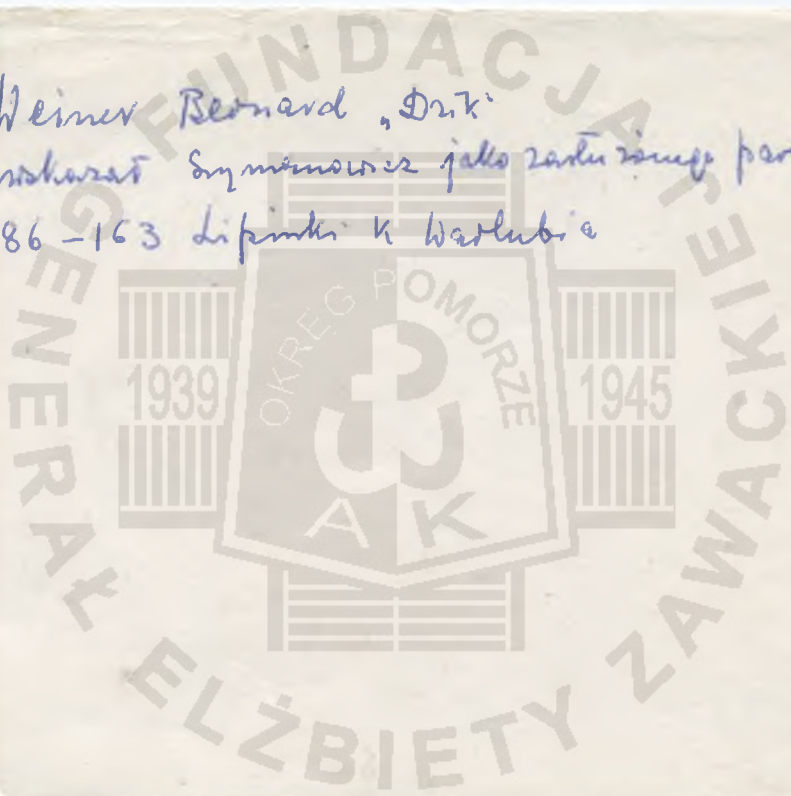 Weiner Bernard „Dzik"
wskazał Szymanowicz jako zasłużonego par
86-163 Lipinki k Warlubia
FUNDACJA GENERAŁ ELŻBIETY ZAWACKIEJ
OKRĘG POMORZE
1939 1945
AK